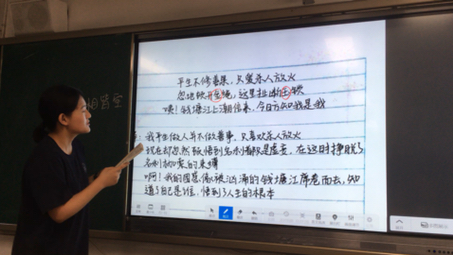 平生不修善果，只爱杀人放火
忽地顿开金绳，这里扯断玉锁
咦！钱塘江上潮信来，今日方知我是我
我平生做人并不做善事，只喜欢杀人放火
忽然 悟到名利都是虚妄，在这时挣脱了
名利枷锁的束缚
啊！我的困惑 被汹涌的钱塘江席卷而去，知
道了自己是谁，悟到了人生的根本